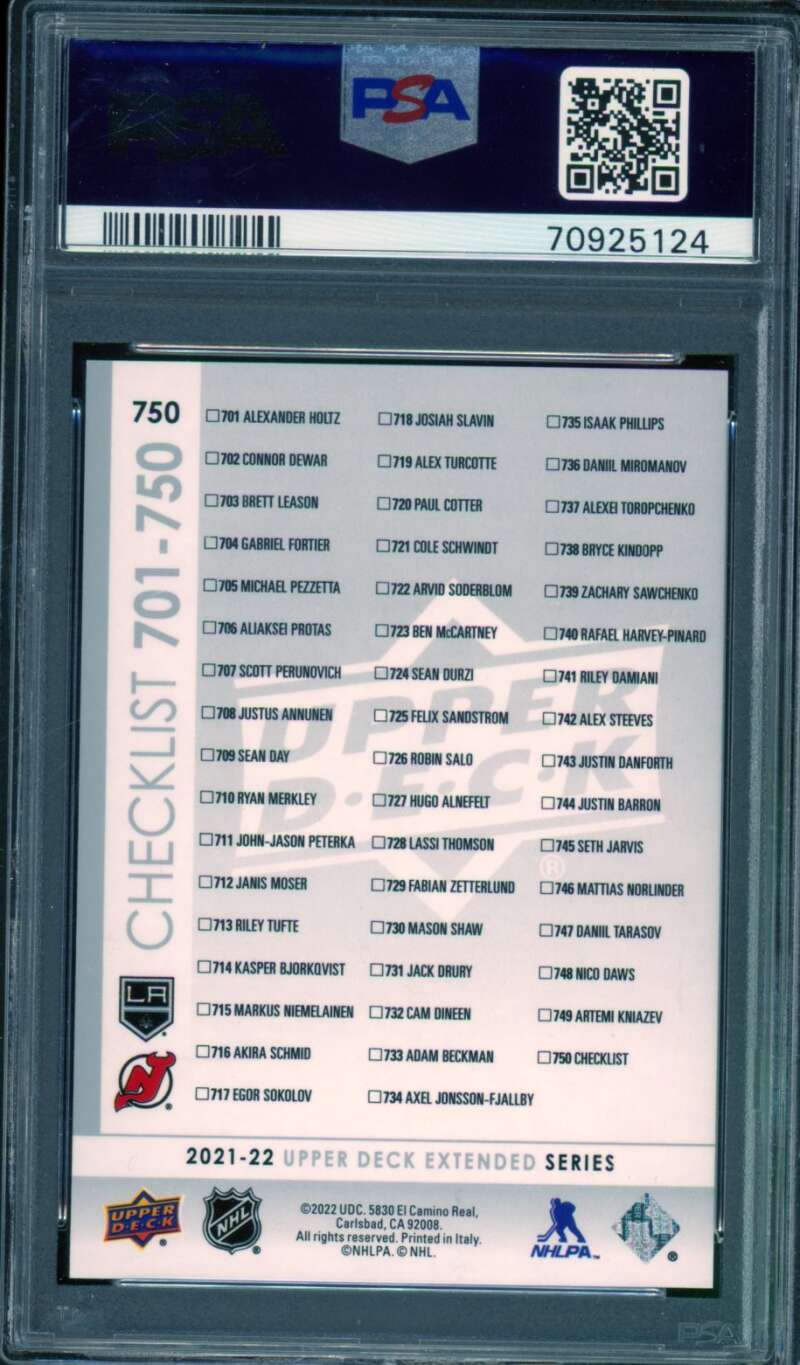 PSA
70925124
750
CHECKLIST 701-750
701 ALEXANDER HOLTZ
702 CONNOR DEWAR
703 BRETT LEASON
704 GABRIEL FORTIER
705 MICHAEL PEZZETTA
706 ALIAKSEI PROTAS
707 SCOTT PERUNOVICH
708 JUSTUS ANNUNEN
709 SEAN DAY
710 RYAN MERKLEY
711 JOHN-JASON PETERKA
712 JANIS MOSER
713 RILEY TUFTE
714 KASPER BJORKQVIST
715 MARKUS NIEMELAINEN
716 AKIRA SCHMID
717 EGOR SOKOLOV
718 JOSIAH SLAVIN
719 ALEX TURCOTTE
720 PAUL COTTER
721 COLE SCHWINDT
722 ARVID SODERBLOM
723 BEN McCARTNEY
724 SEAN DURZI
725 FELIX SANDSTROM
726 ROBIN SALO
727 HUGO ALNEFELT
728 LASSI THOMSON
729 FABIAN ZETTERLUND
730 MASON SHAW
731 JACK DRURY
732 CAM DINEEN
733 ADAM BECKMAN
734 AXEL JONSSON-FJALLBY
735 ISAAK PHILLIPS
736 DANIIL MIROMANOV
737 ALEXEI TOROPCHENKO
738 BRYCE KINDOPP
739 ZACHARY SAWCHENKO
740 RAFAEL HARVEY-PINARD
741 RILEY DAMIANI
742 ALEX STEEVES
743 JUSTIN DANFORTH
744 JUSTIN BARRON
745 SETH JARVIS
746 MATTIAS NORLINDER
747 DANIIL TARASOV
748 NICO DAWS
749 ARTEMI KNIAZEV
750 CHECKLIST
UPPER
D·E·C·K
®
LA
NJ
2021-22 UPPER DECK EXTENDED SERIES
UPPER
D·E·C·K
NHL
©2022 UDC. 5830 El Camino Real,
Carlsbad, CA 92008.
All rights reserved. Printed in Italy.
©NHLPA. © NHL.
NHLPA™
PSA